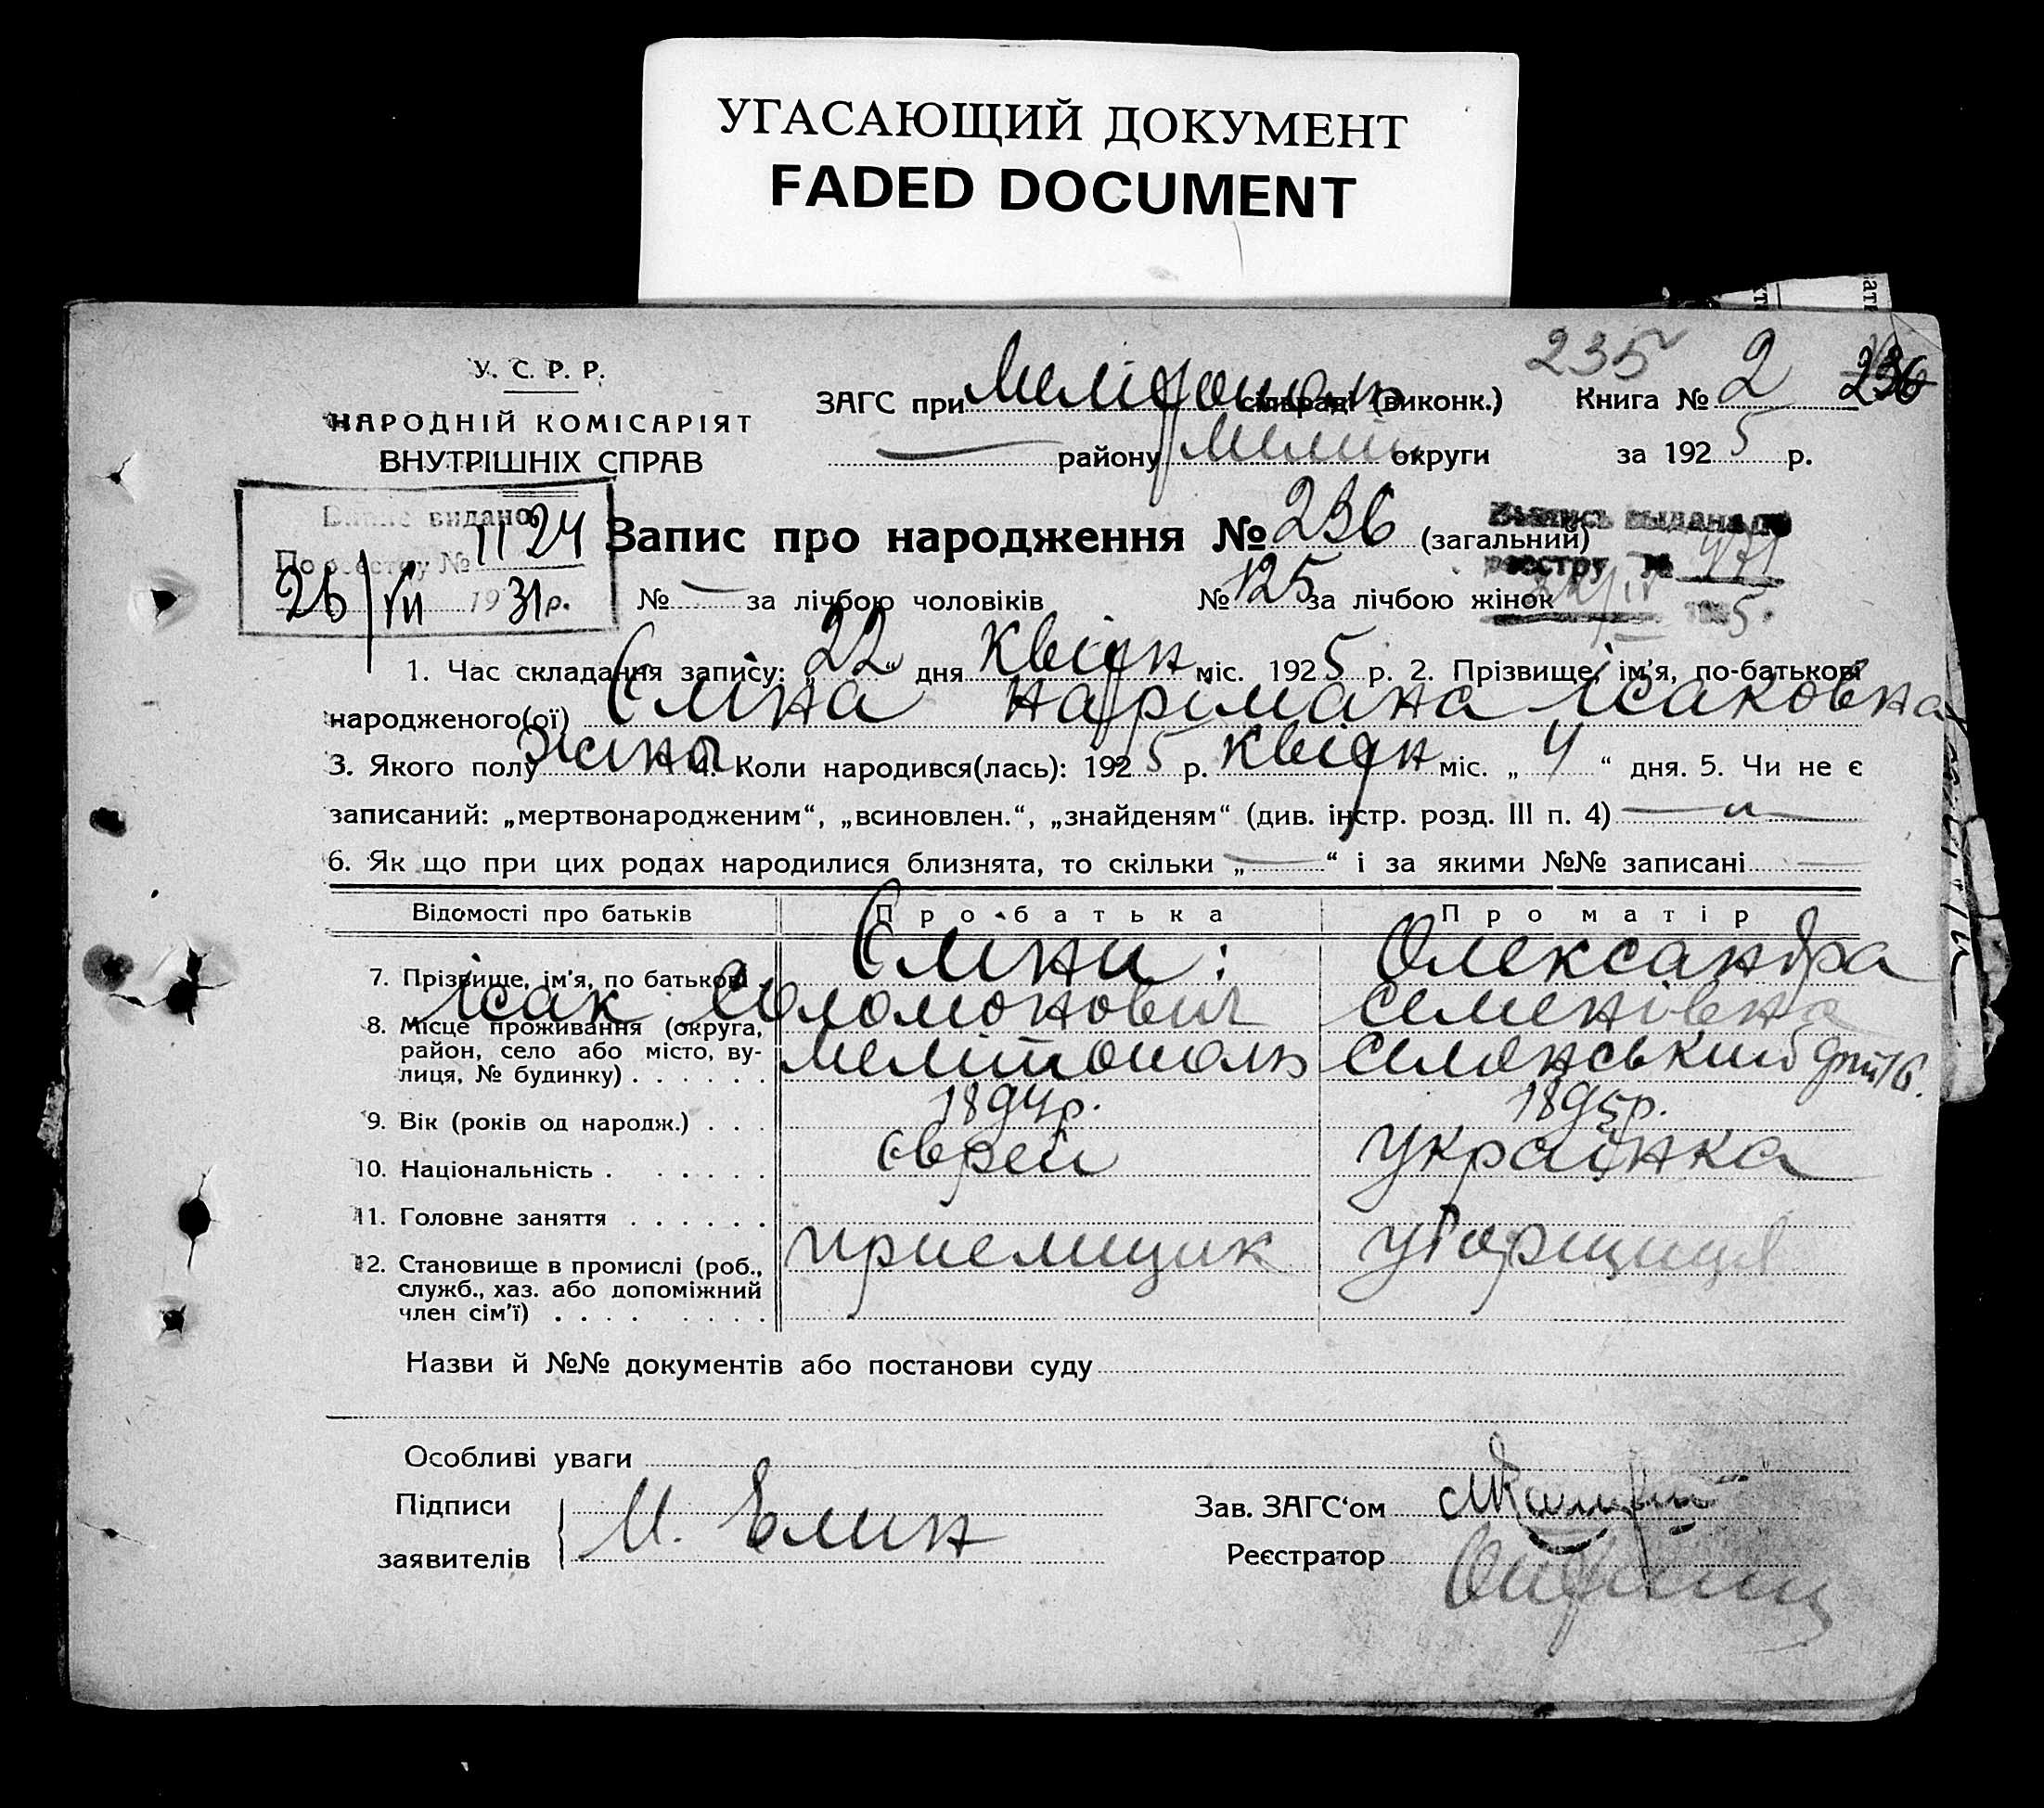 УГАСАЮЩИЙ ДОКУМЕНТ
FADED DOCUMENT
235
236
У. С. Р. Р.
НАРОДНІЙ КОМІСАРІЯТ
ВНУТРІШНІХ СПРАВ
ЗАГС при Меліто сільраді (виконк.) Книга № 2
району Меліт округи за 1925 р.
Випис видано
По реєстру № 1124
26/VII 1931 р.
Запис про народження № 236 (загальний)
выдана
реестру № 471
5
№ — за лічбою чоловіків № 125 за лічбою жінок
1. Час складання запису: „22“ дня Квітн міс. 1925 р. 2. Прізвище, ім'я, по-батькові
народженого(ої) Єліна Нарімана Ісаковна
3. Якого полу жіно 4. Коли народився(лась): 1925 р. Квітн міс. „4“ дня. 5. Чи не є
записаний: „мертвонародженим“, „всиновлен.“, „знайденям“ (див. інстр. розд. III п. 4)
6. Як що при цих родах народилися близнята, то скільки „—“ і за якими №№ записані
Відомості про батьків Про батька Про матір
7. Прізвище, ім'я, по батькові Єліни: Олександра
Ісак Соломонович Семенівна
8. Місце проживання (округа, район, село або місто, вулиця, № будинку) Мелітополь
9. Вік (років од народж.) 1894р. 1895р.
10. Національність Єврей Українка
11. Головне заняття
12. Становище в промислі (роб., служб., хаз. або допоміжний член сім'ї) приемщик
Назви й №№ документів або постанови суду
Особливі уваги
Підписи
заявителів И. Елин
Зав. ЗАГС'ом
Реєстратор